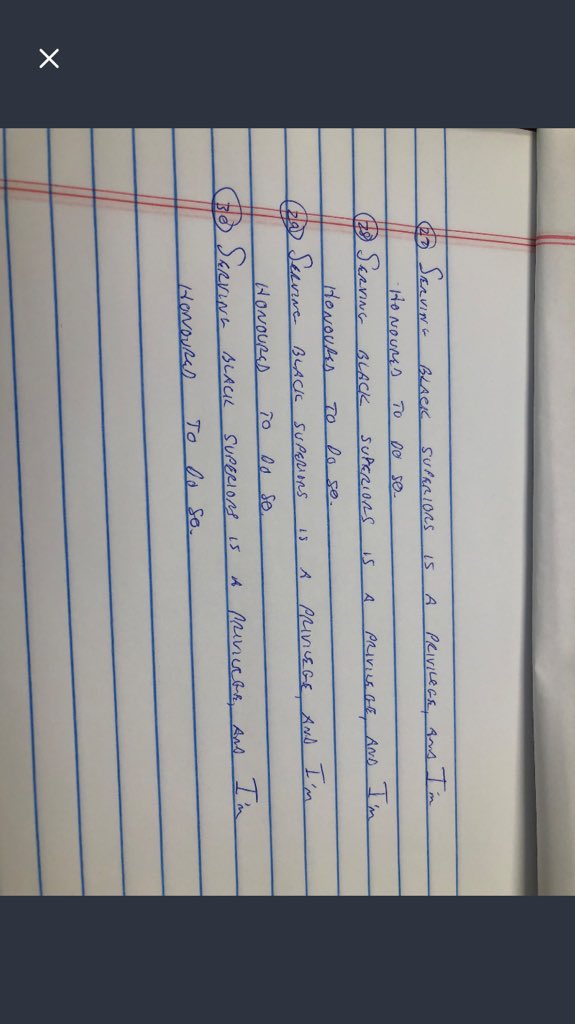 27 SERVING BLACK SUPERIORS IS A PRIVILEGE, AND I'M
HONOURED TO DO SO.
28 SERVING BLACK SUPERIORS IS A PRIVILEGE, AND I'M
HONOURED TO DO SO.
29 SERVING BLACK SUPERIORS IS A PRIVILEGE, AND I'M
HONOURED TO DO SO.
30 SERVING BLACK SUPERIORS IS A PRIVILEGE, AND I'M
HONOURED TO DO SO.